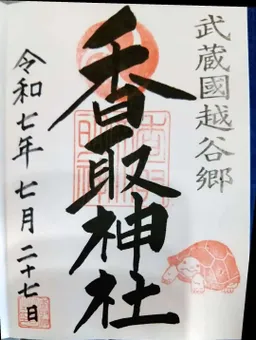 武蔵國越谷郷
香取神社
令和七年七月二十七日